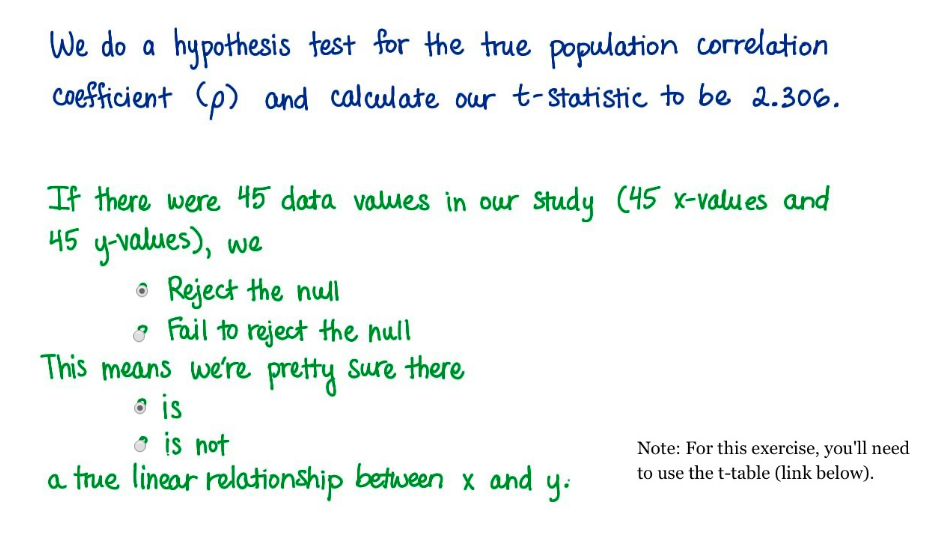 We do a hypothesis test for the true population correlation
coefficient (ρ) and calculate our t-statistic to be 2.306.
If there were 45 data values in our study (45 x-values and
45 y-values), we
Reject the null
Fail to reject the null
This means we're pretty sure there
is
is not
a true linear relationship between x and y.
Note: For this exercise, you'll need
to use the t-table (link below).